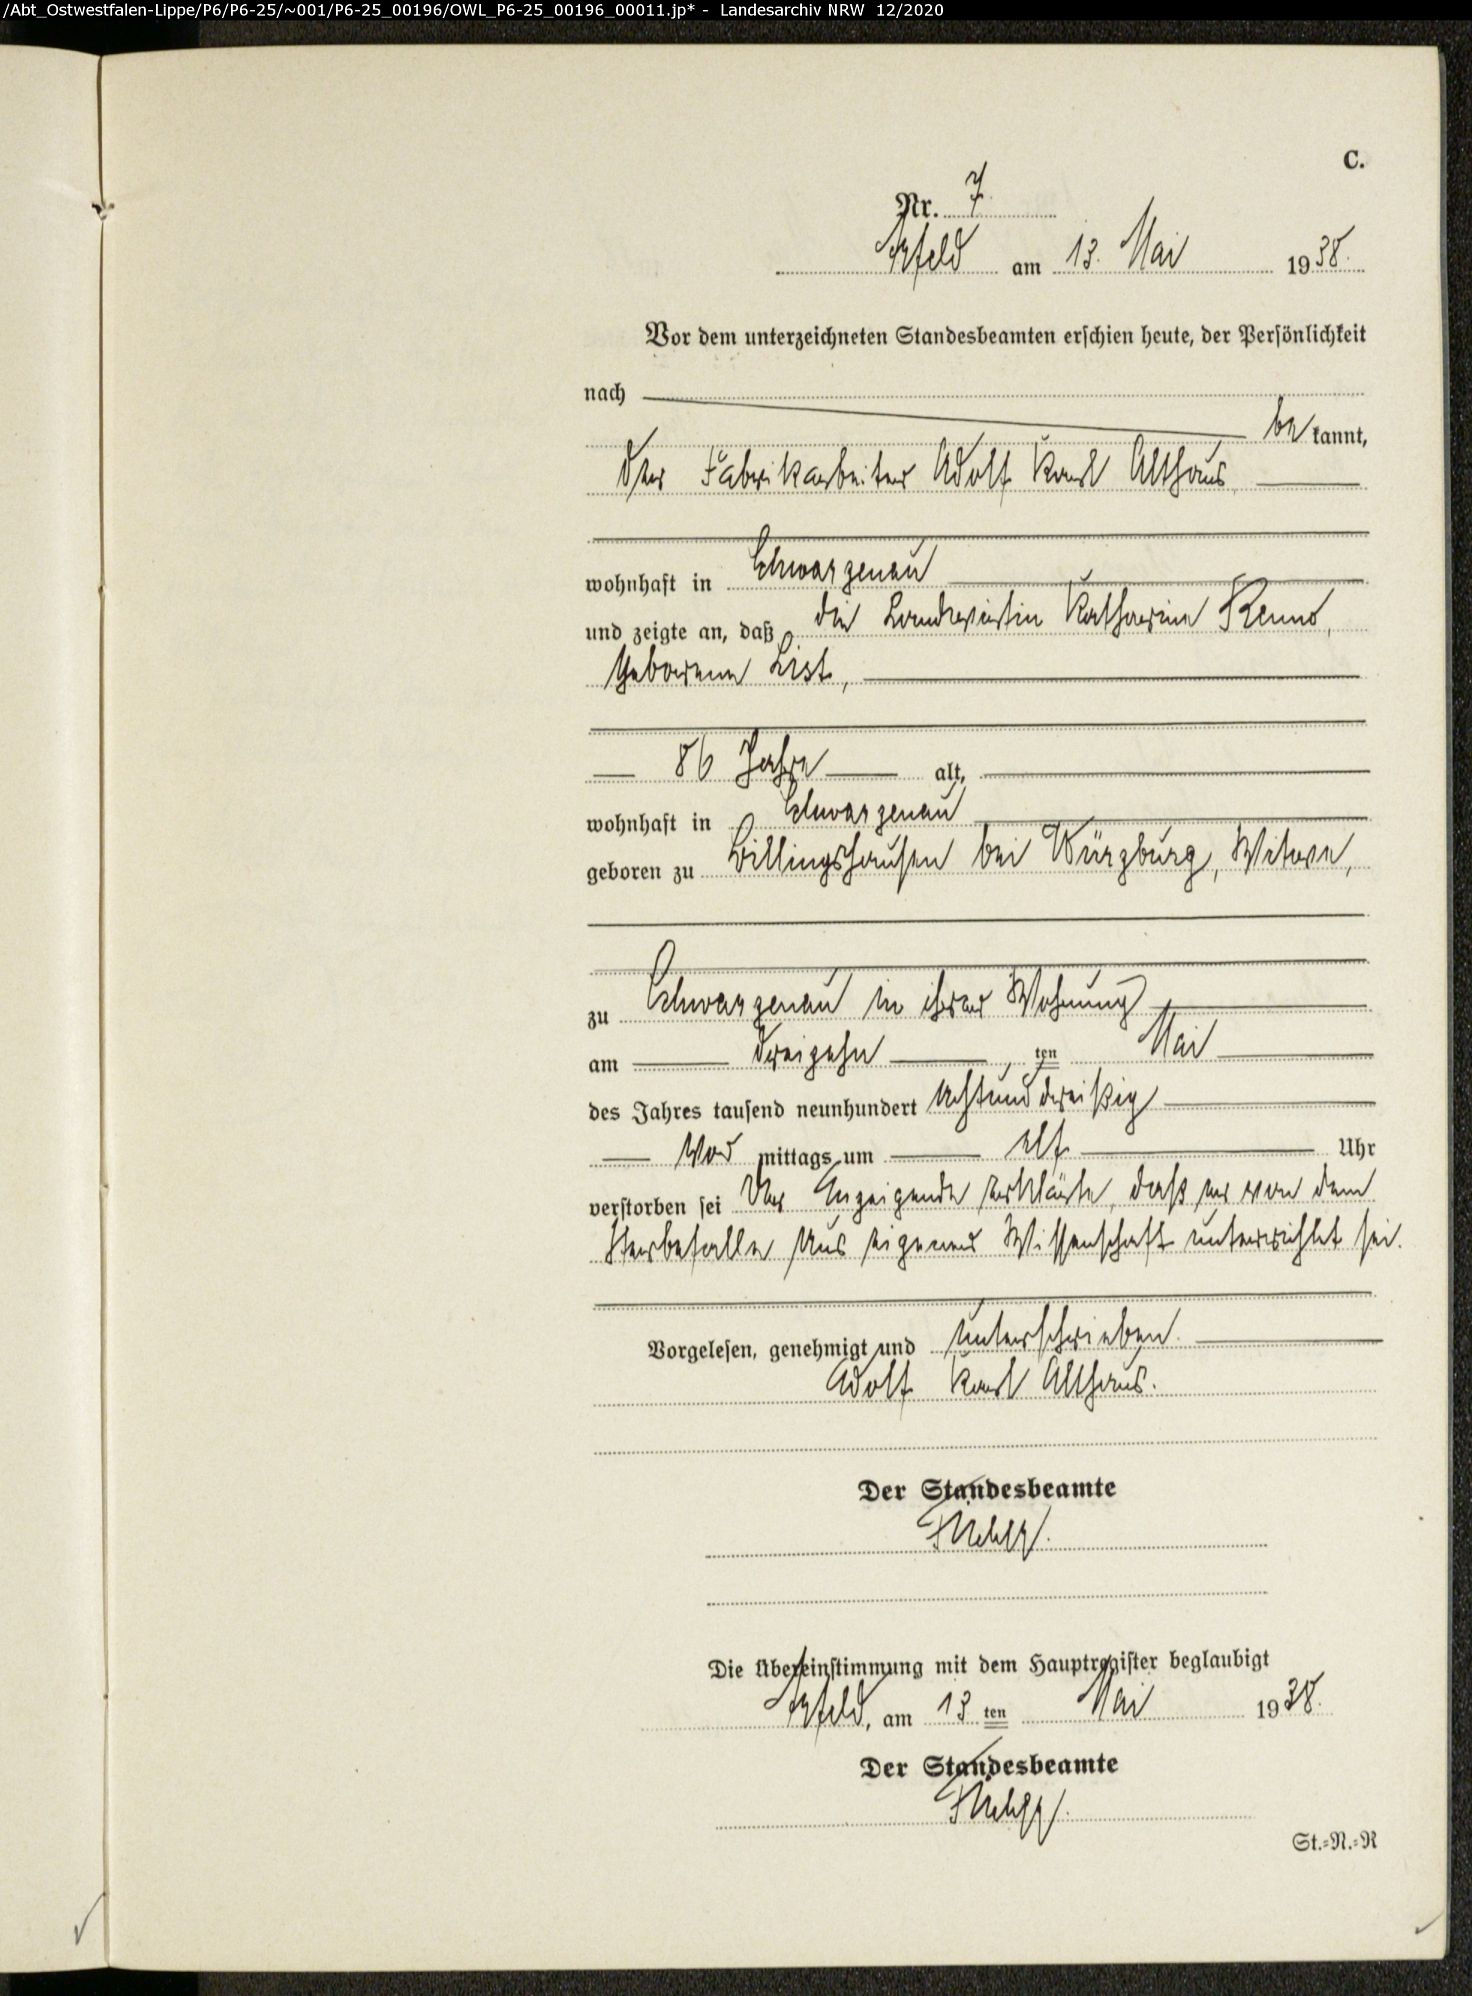 /Abt_Ostwestfalen-Lippe/P6/P6-25/~001/P6-25_00196/OWL_P6-25_00196_00011.jp* - Landesarchiv NRW 12/2020
C.
Nr. 7
Arfeld am 13. Mai 1938.
Vor dem unterzeichneten Standesbeamten erschien heute, der Persönlichkeit
nach
be kannt,
der Fabrikarbeiter Adolf Karl Althaus
wohnhaft in Schwarzenau
und zeigte an, daß die Landwirtin Katharine
geborene List,
86 Jahre alt,
wohnhaft in Schwarzenau
geboren zu Billingshausen bei Würzburg, Witwe,
zu Schwarzenau in ihrer Wohnung
am dreizehn ten Mai
des Jahres tausend neunhundert achtunddreißig
Vor mittags um elf Uhr
verstorben sei Der Anzeigende erklärte, daß er von dem
Sterbefalle aus eigener Wissenschaft unterrichtet sei.
Vorgelesen, genehmigt und unterschrieben.
Adolf Karl Althaus.
Der Standesbeamte
Die Übereinstimmung mit dem Hauptregister beglaubigt
Arfeld, am 13 ten Mai 1938.
Der Standesbeamte
St.-N.-R